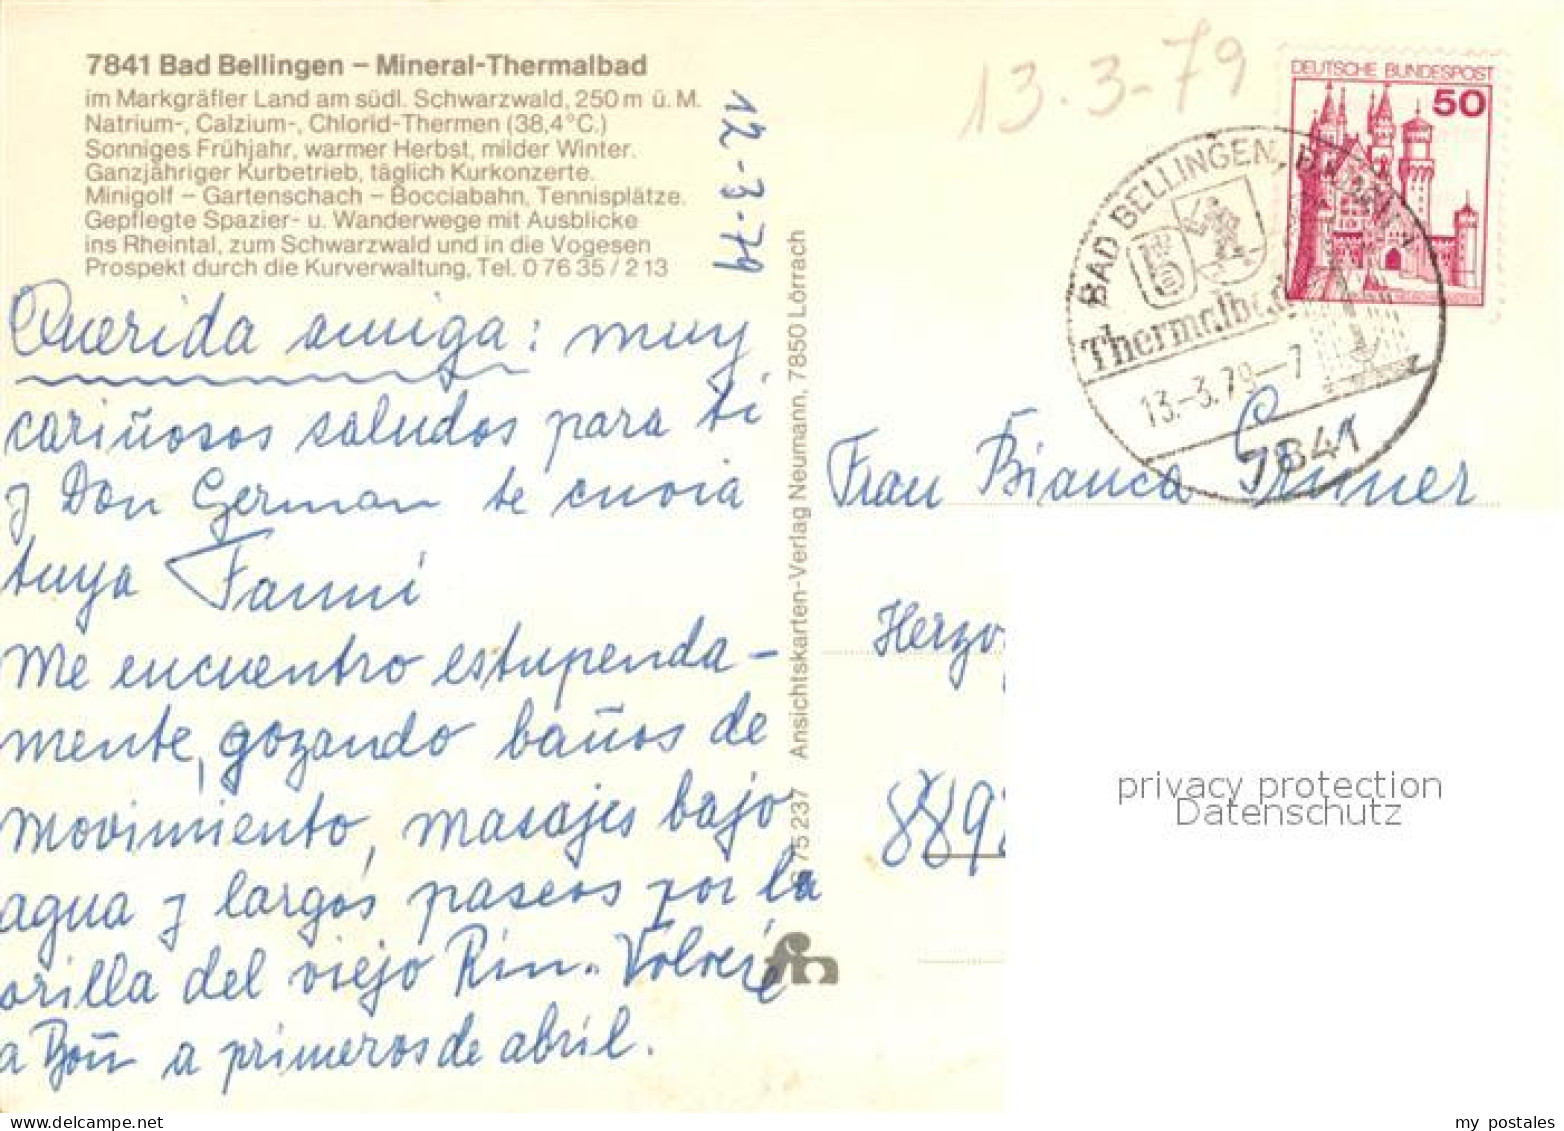 7841 Bad Bellingen – Mineral-Thermalbad
im Markgräfler Land am südl. Schwarzwald, 250 m ü. M.
Natrium-, Calzium-, Chlorid-Thermen (38,4°C.)
Sonniges Frühjahr, warmer Herbst, milder Winter.
Ganzjähriger Kurbetrieb, täglich Kurkonzerte.
Minigolf – Gartenschach – Bocciabahn, Tennisplätze.
Gepflegte Spazier- u. Wanderwege mit Ausblicke
ins Rheintal, zum Schwarzwald und in die Vogesen
Prospekt durch die Kurverwaltung, Tel. 0 76 35 / 2 13
12-3-79
Querida amiga: muy
cariñosos saludos para ti
y Don German te envia
tuya Fanni
Me encuentro estupenda-
mente, gozando baños de
movimiento, masajes bajo
agua y largos paseos por la
orilla del viejo Rin. Volveré
a Boñ a primeros de abril.
75 237 Ansichtskarten-Verlag Neumann, 7850 Lörrach
fn
13.3-79
DEUTSCHE BUNDESPOST
50
BAD BELLINGEN,
Thermalbad
13.-3.79-7
7841
Frau Bianca Gruner
Herzo
889
privacy protection
Datenschutz
my postales